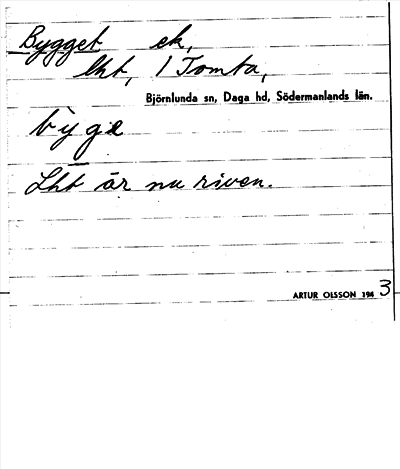 Bygget ek,
lht, 1 Tomta,
Björnlunda sn, Daga hd, Södermanlands län.
bỳge
Lht är nu riven.
ARTUR OLSSON 1943